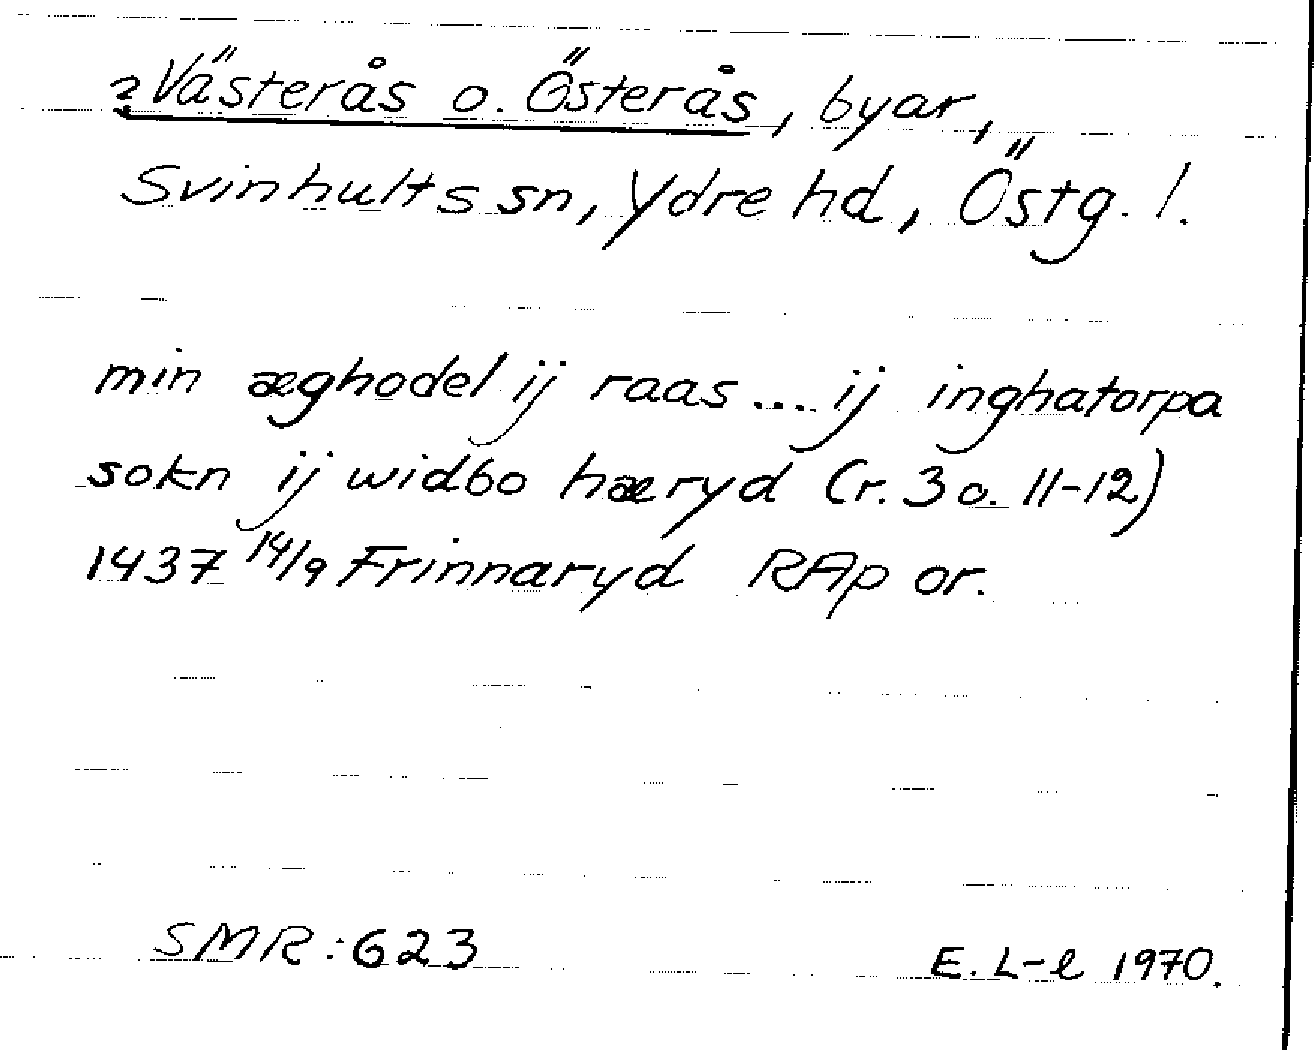 ?Västerås o. Österås, byar,
Svinhults sn, Ydre hd, Östg. l.
min æghodel ij raas ... ij inghatorpa
sokn ij widbo hæryd (r. 3 o. 11-12)
1437 14/9 Frinnaryd RAp or.
SMR:623
E. L-l 1970.